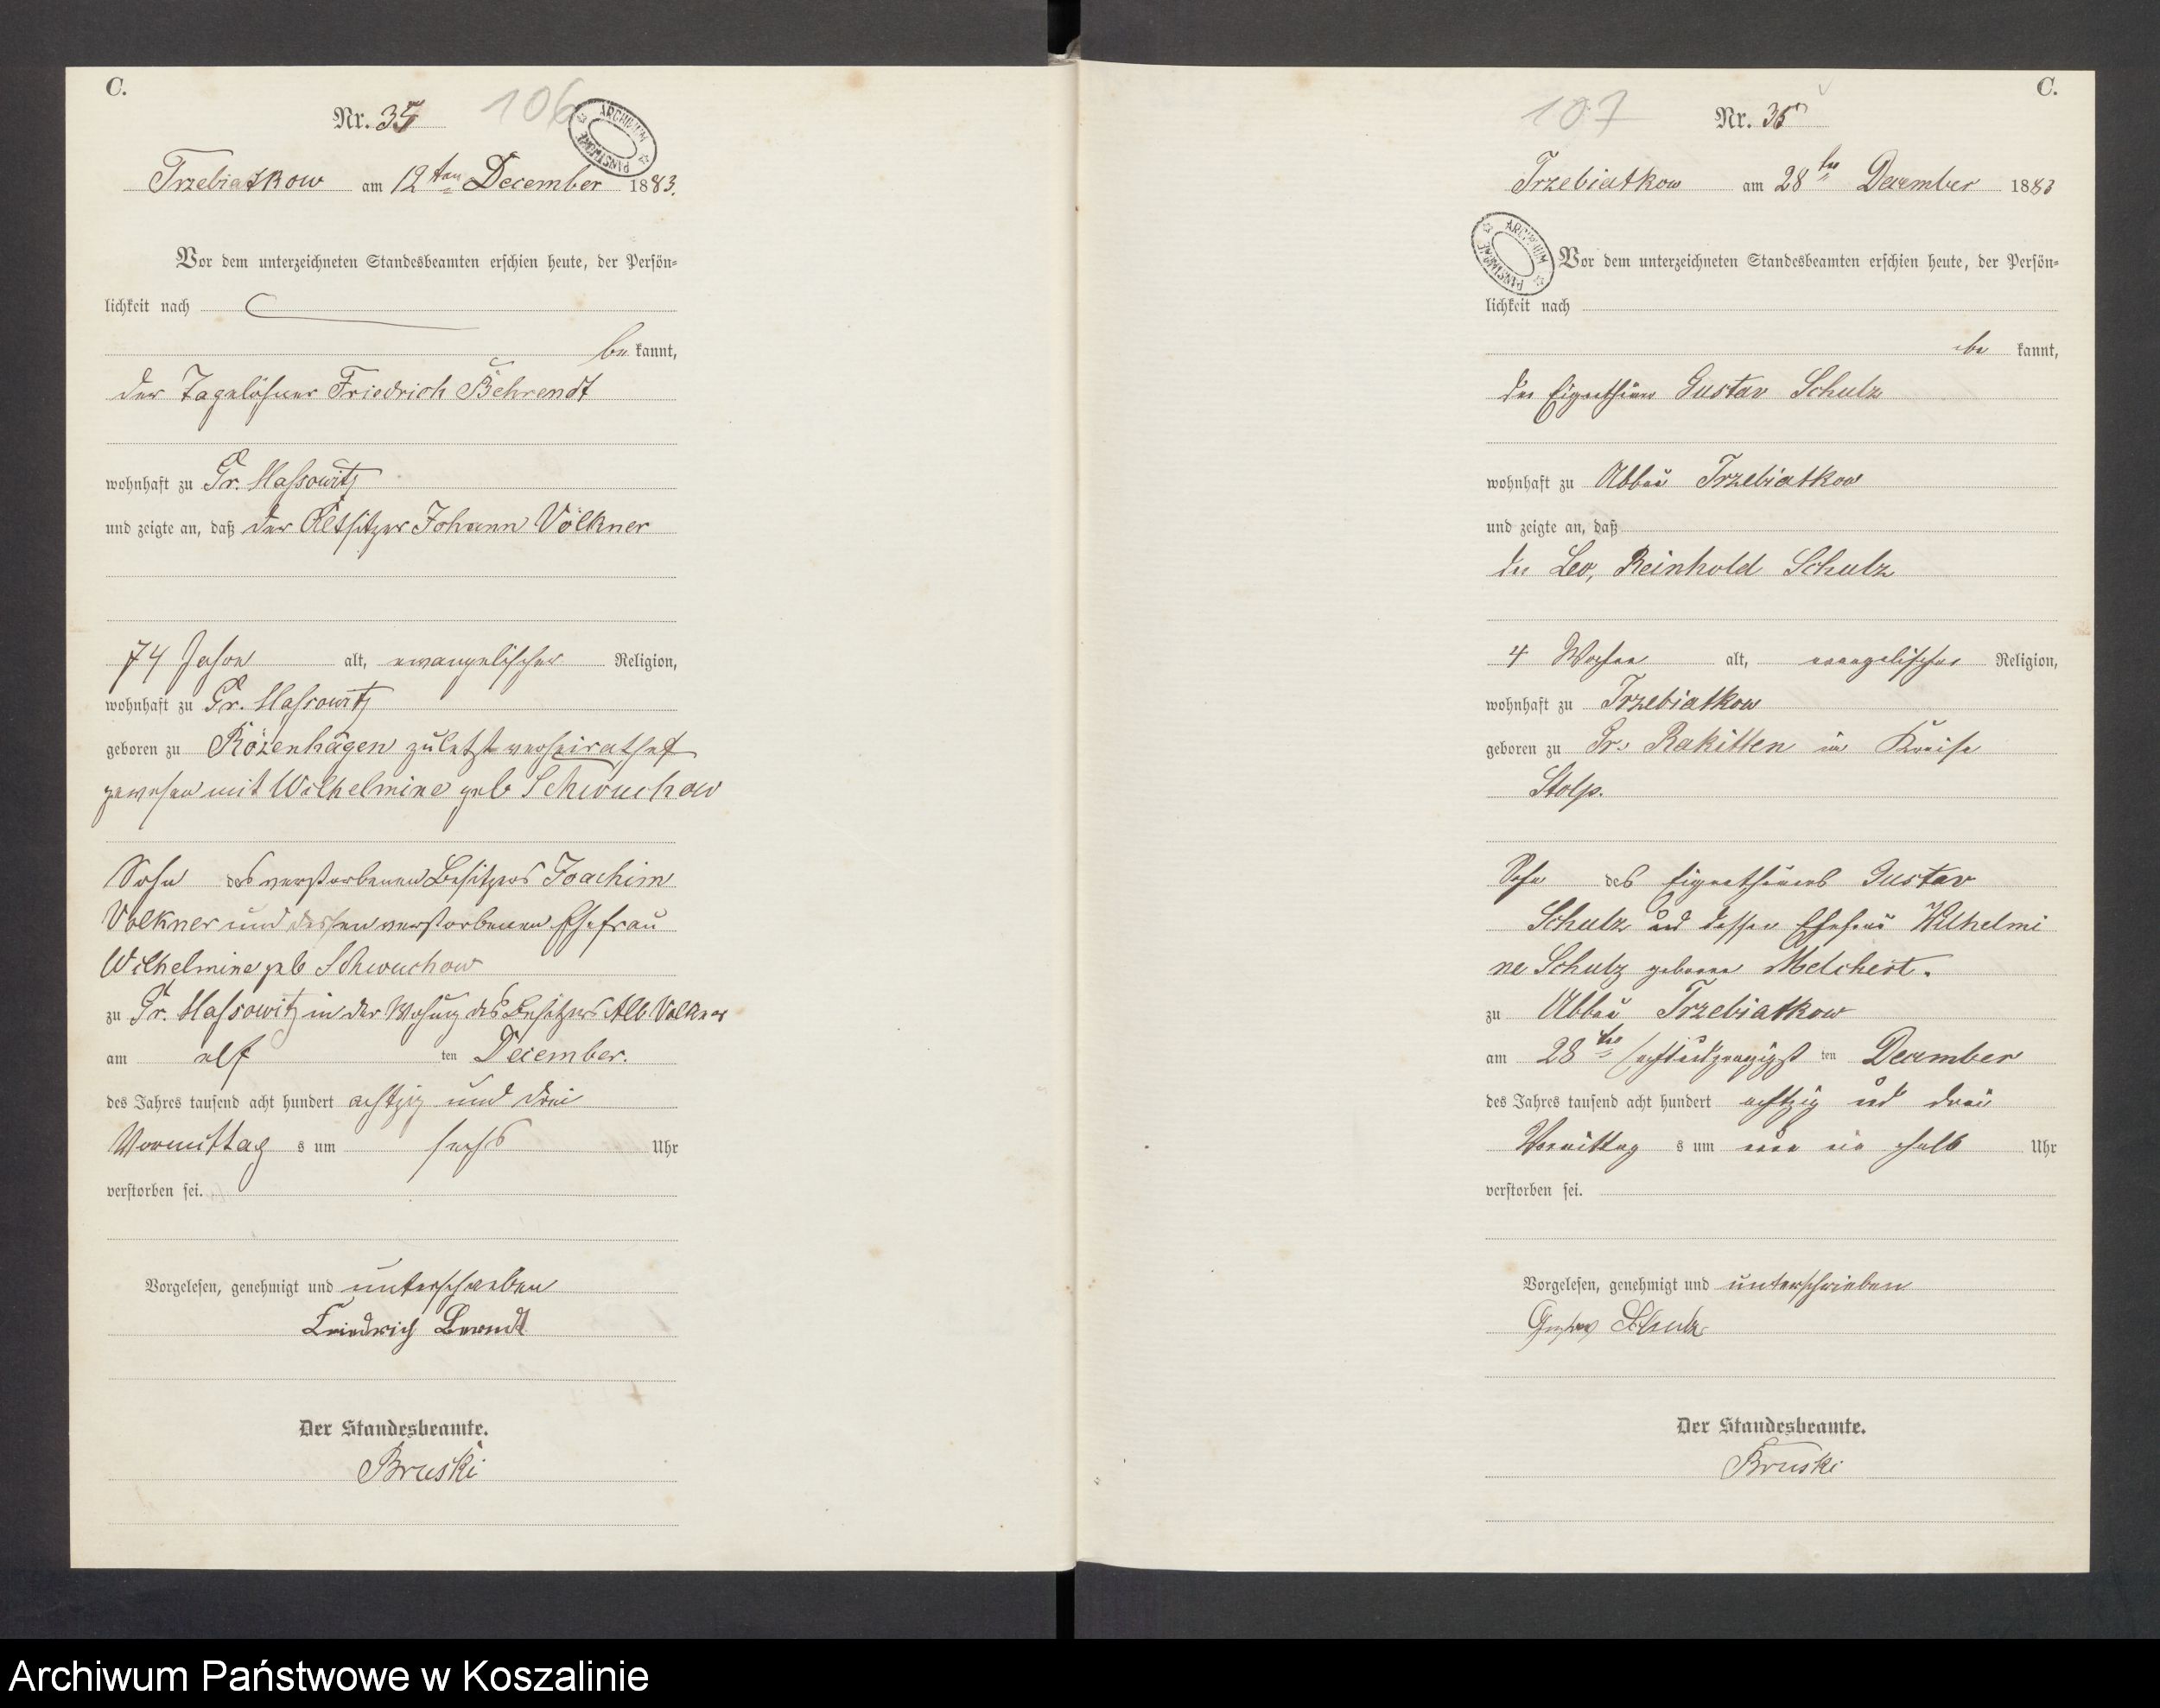 C.
Nr. 34
106
ARCHIWUM PAŃSTWOWE
Trzebiatkow am 12ten December 1883.
Vor dem unterzeichneten Standesbeamten erschien heute, der Persön=
lichkeit nach
be kannt,
der Tagelöhner Friedrich Behrendt
wohnhaft zu Gr. Massowitz
und zeigte an, daß der Altsitzer Johann Völkner
74 Jahre alt, evangelischer Religion,
wohnhaft zu Gr. Massowitz
geboren zu Rözenhagen zuletzt verheirathet
gewesen mit Wilhelmine geb Schwuchow
Sohn des verstorbenen Besitzers Joachim
Volkner und dessen verstorbenen Ehefrau
Wilhelmine geb Schwuchow
zu Gr. Massowitz in der Wohung des Besitzers Alb Volkner
am elf ten December.
des Jahres tausend acht hundert achtzig und drei
Vormittag s um sechs Uhr
verstorben sei.
Vorgelesen, genehmigt und unterschrieben
Friedrich Berndt
Der Standesbeamte.
Bruski
C.
107
Nr. 35
Trzebiatkow am 28ten December 1883
ARCHIWUM PAŃSTWOWE
Vor dem unterzeichneten Standesbeamten erschien heute, der Persön=
lichkeit nach
be kannt,
der Eigenthümer Gustav Schulz
wohnhaft zu Abbau Trzebiatkow
und zeigte an, daß
der Leo, Reinhold Schulz
4 Wochen alt, evangelischer Religion,
wohnhaft zu Trzebiatkow
geboren zu Gr. Rakitten in Kreise
Stolp.
Sohn des Eigenthümers Gustav
Schulz und dessen Ehefrau Wilhelmi
ne Schulz geborne Melchert.
zu Abbau Trzebiatkow
am 28ten (achtundzwanzigst ten December
des Jahres tausend acht hundert achtzig und drei
Vormittag s um ein halb Uhr
verstorben sei.
Vorgelesen, genehmigt und unterschrieben
Gustav Schulz
Der Standesbeamte.
Bruski
Archiwum Państwowe w Koszalinie